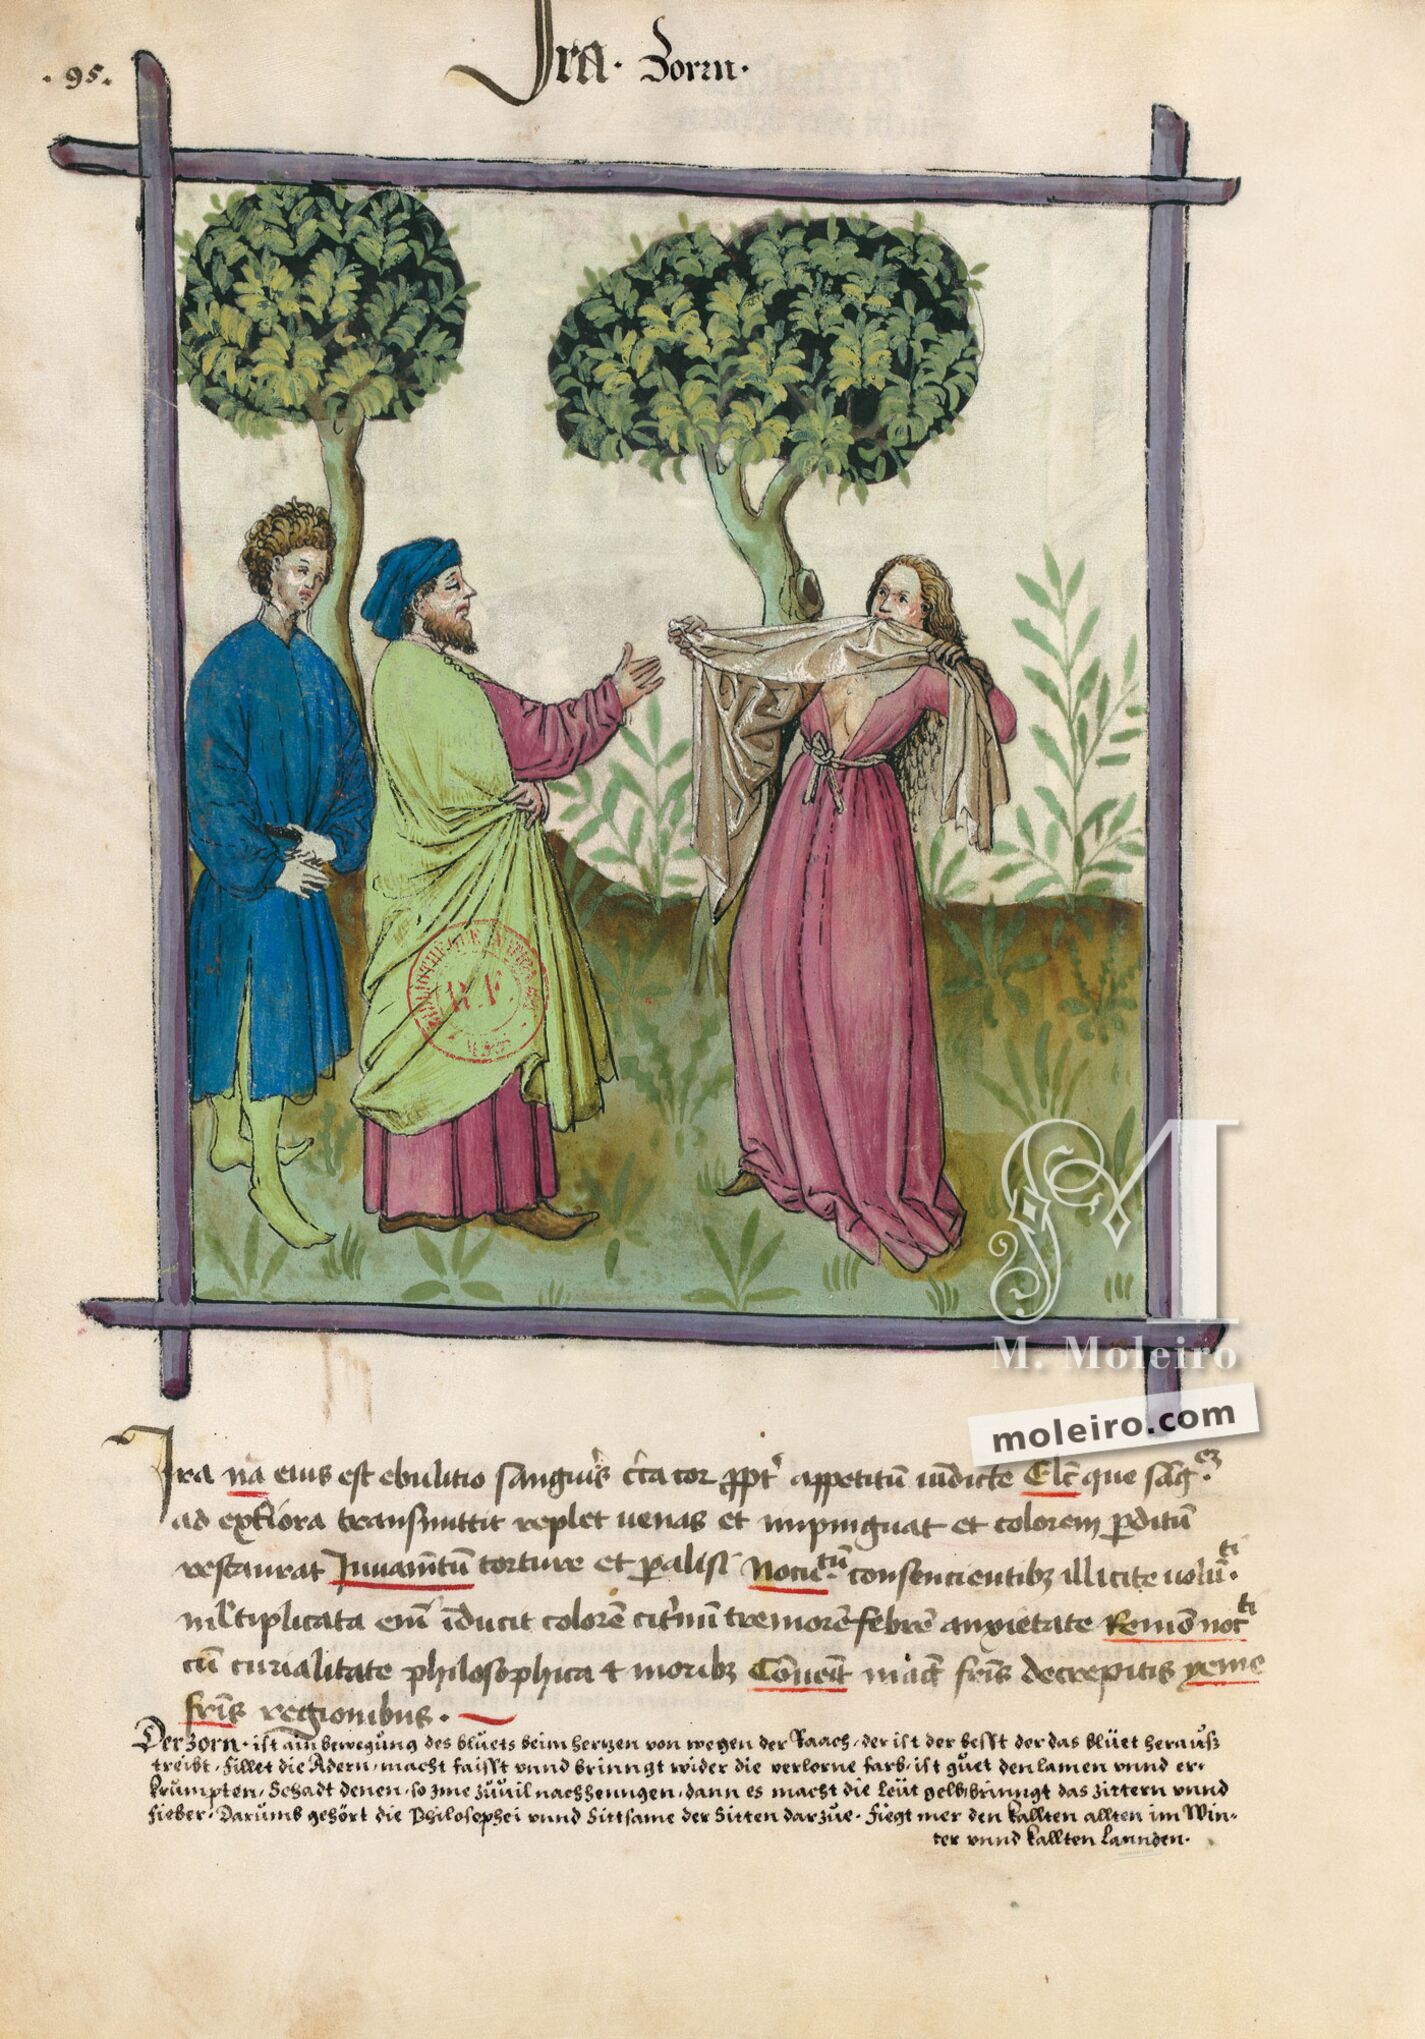 · 95 ·
Ira · Zorrn ·
M
M. Moleiro
moleiro.com
Ira na eius est ebulitio sanguis circa cor ppt appetitū uīdicte Elcō que sāg
ad extiora transmittit replet uenas et impinguat et colorem pditū
restaurat Iuuamtū torture et paliſi Nocūtū consencientibz illicite uolūti
mltiplicata em̄ īducit colorē citnū tremorē febrē anxietate Remō nocti
cū curialitate philosophica & moribz Cōuēit fris decrepitis yeme
fris regionibus ·
Der zorn · ist ain bewegung des bluets beim hertzen von wegen der Raach · der ist der besst der das blüet herauß
treibt · fillet die Adern · macht faisst vnnd brinngt wider die verlorne farb · ist guet den lamen vnnd er-
krumpten · Schadt denen · so zuuil nachhenngen · dann es macht die leüt gelb · brinngt das zittern vnnd
fieber · Darumb gehört die Philosophei vnnd Sittsame der Sitten darzue · fiegt mer den kallten allten im Win-
ter vnnd kallten Lannden ·